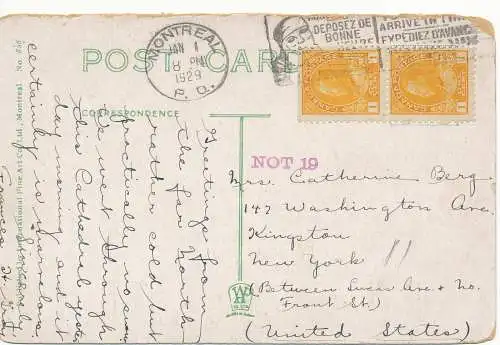 POST CARD
MONTREAL
JAN 1
8 PM
1929
P. Q.
DEPOSEZ DE
BONNE
HEURE
ARRIVE IN TIME
EXPEDIEZ D'AVANCE
CANADA POSTAGE
1 1
CANADA POSTAGE
1 1
CORRESPONDENCE
Greetings from
the far North
rather cold but
practically no snow
We went through
this Cathedral yester
day morning and it
certainly is marvelous.
Frances H.
International Fine Art Co., Ltd., Montreal
NOT 19
Mrs. Catherine Berg
147 Washington Ave.
Kingston
New York 11
(Between Ave & No.
Front St.)
(United States)